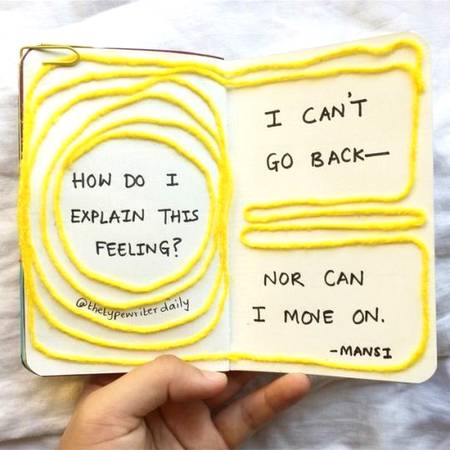 HOW DO I
EXPLAIN THIS
FEELING?
@thetypewriterdaily
I CAN'T
GO BACK—
NOR CAN
I MOVE ON.
-MANSI